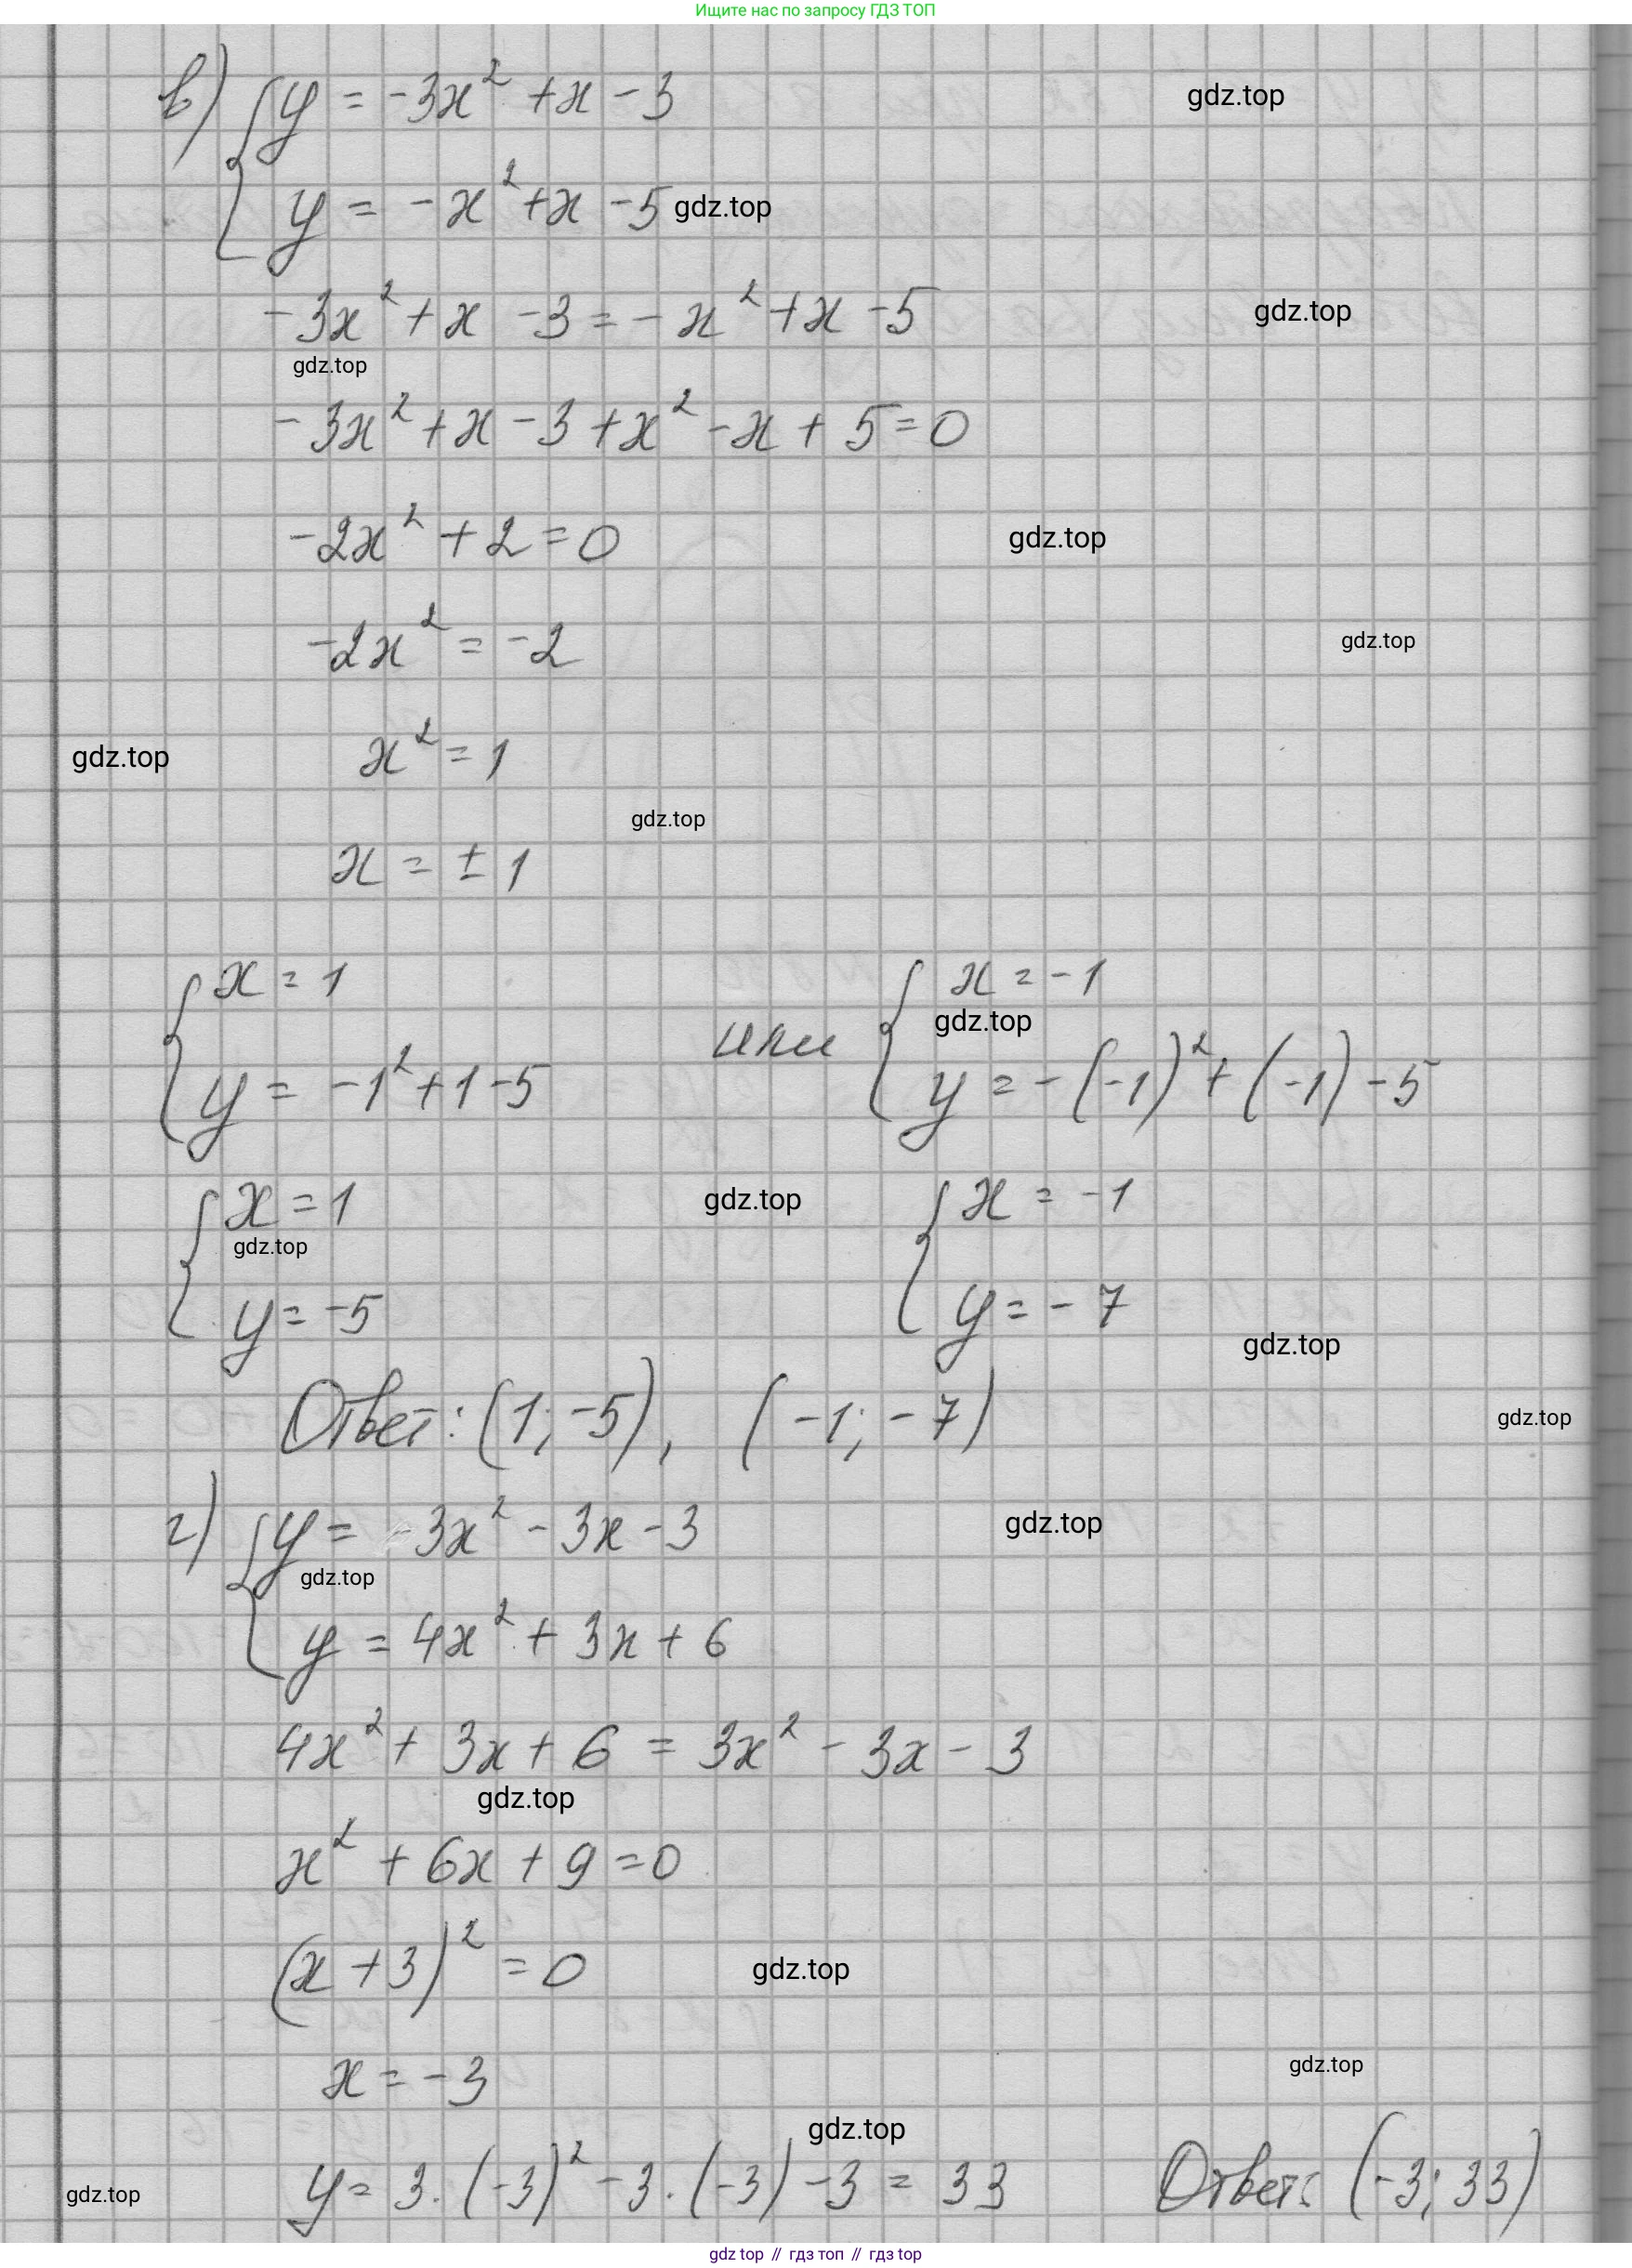 Ищите нас по запросу ГДЗ ТОП
в) { y = -3x² + x - 3 gdz.top
y = -x² + x - 5 gdz.top
-3x² + x - 3 = -x² + x - 5 gdz.top
gdz.top
-3x² + x - 3 + x² - x + 5 = 0
-2x² + 2 = 0 gdz.top
-2x² = -2 gdz.top
gdz.top x² = 1
gdz.top
x = ± 1
{ x = 1 или { x = -1
gdz.top
y = -1² + 1 - 5 y = -(-1)² + (-1) - 5
{ x = 1 gdz.top { x = -1
gdz.top
y = -5 y = -7
gdz.top
Ответ: (1; -5), (-1; -7) gdz.top
г) { y = -3x² - 3x - 3 gdz.top
gdz.top
y = 4x² + 3x + 6
4x² + 3x + 6 = 3x² - 3x - 3
gdz.top
x² + 6x + 9 = 0
(x + 3)² = 0 gdz.top
x = -3 gdz.top
gdz.top
gdz.top y = 3 · (-3)² - 3 · (-3) - 3 = 33 Ответ: (-3; 33)
gdz top // гдз топ // гдз top